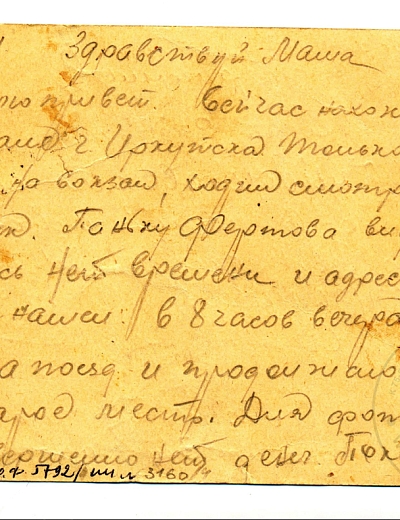 Здравствуй Маша
привет. Сейчас нахон
г Иркутска только
на вокзал, ходил смотр
Паньку Фертова ви
сь нет времени и адрес
нашел. в 8 часов вечера
а поезд и продолжаю
арое место. Для фот
вершено нет денг. Пок
5792/ 3160